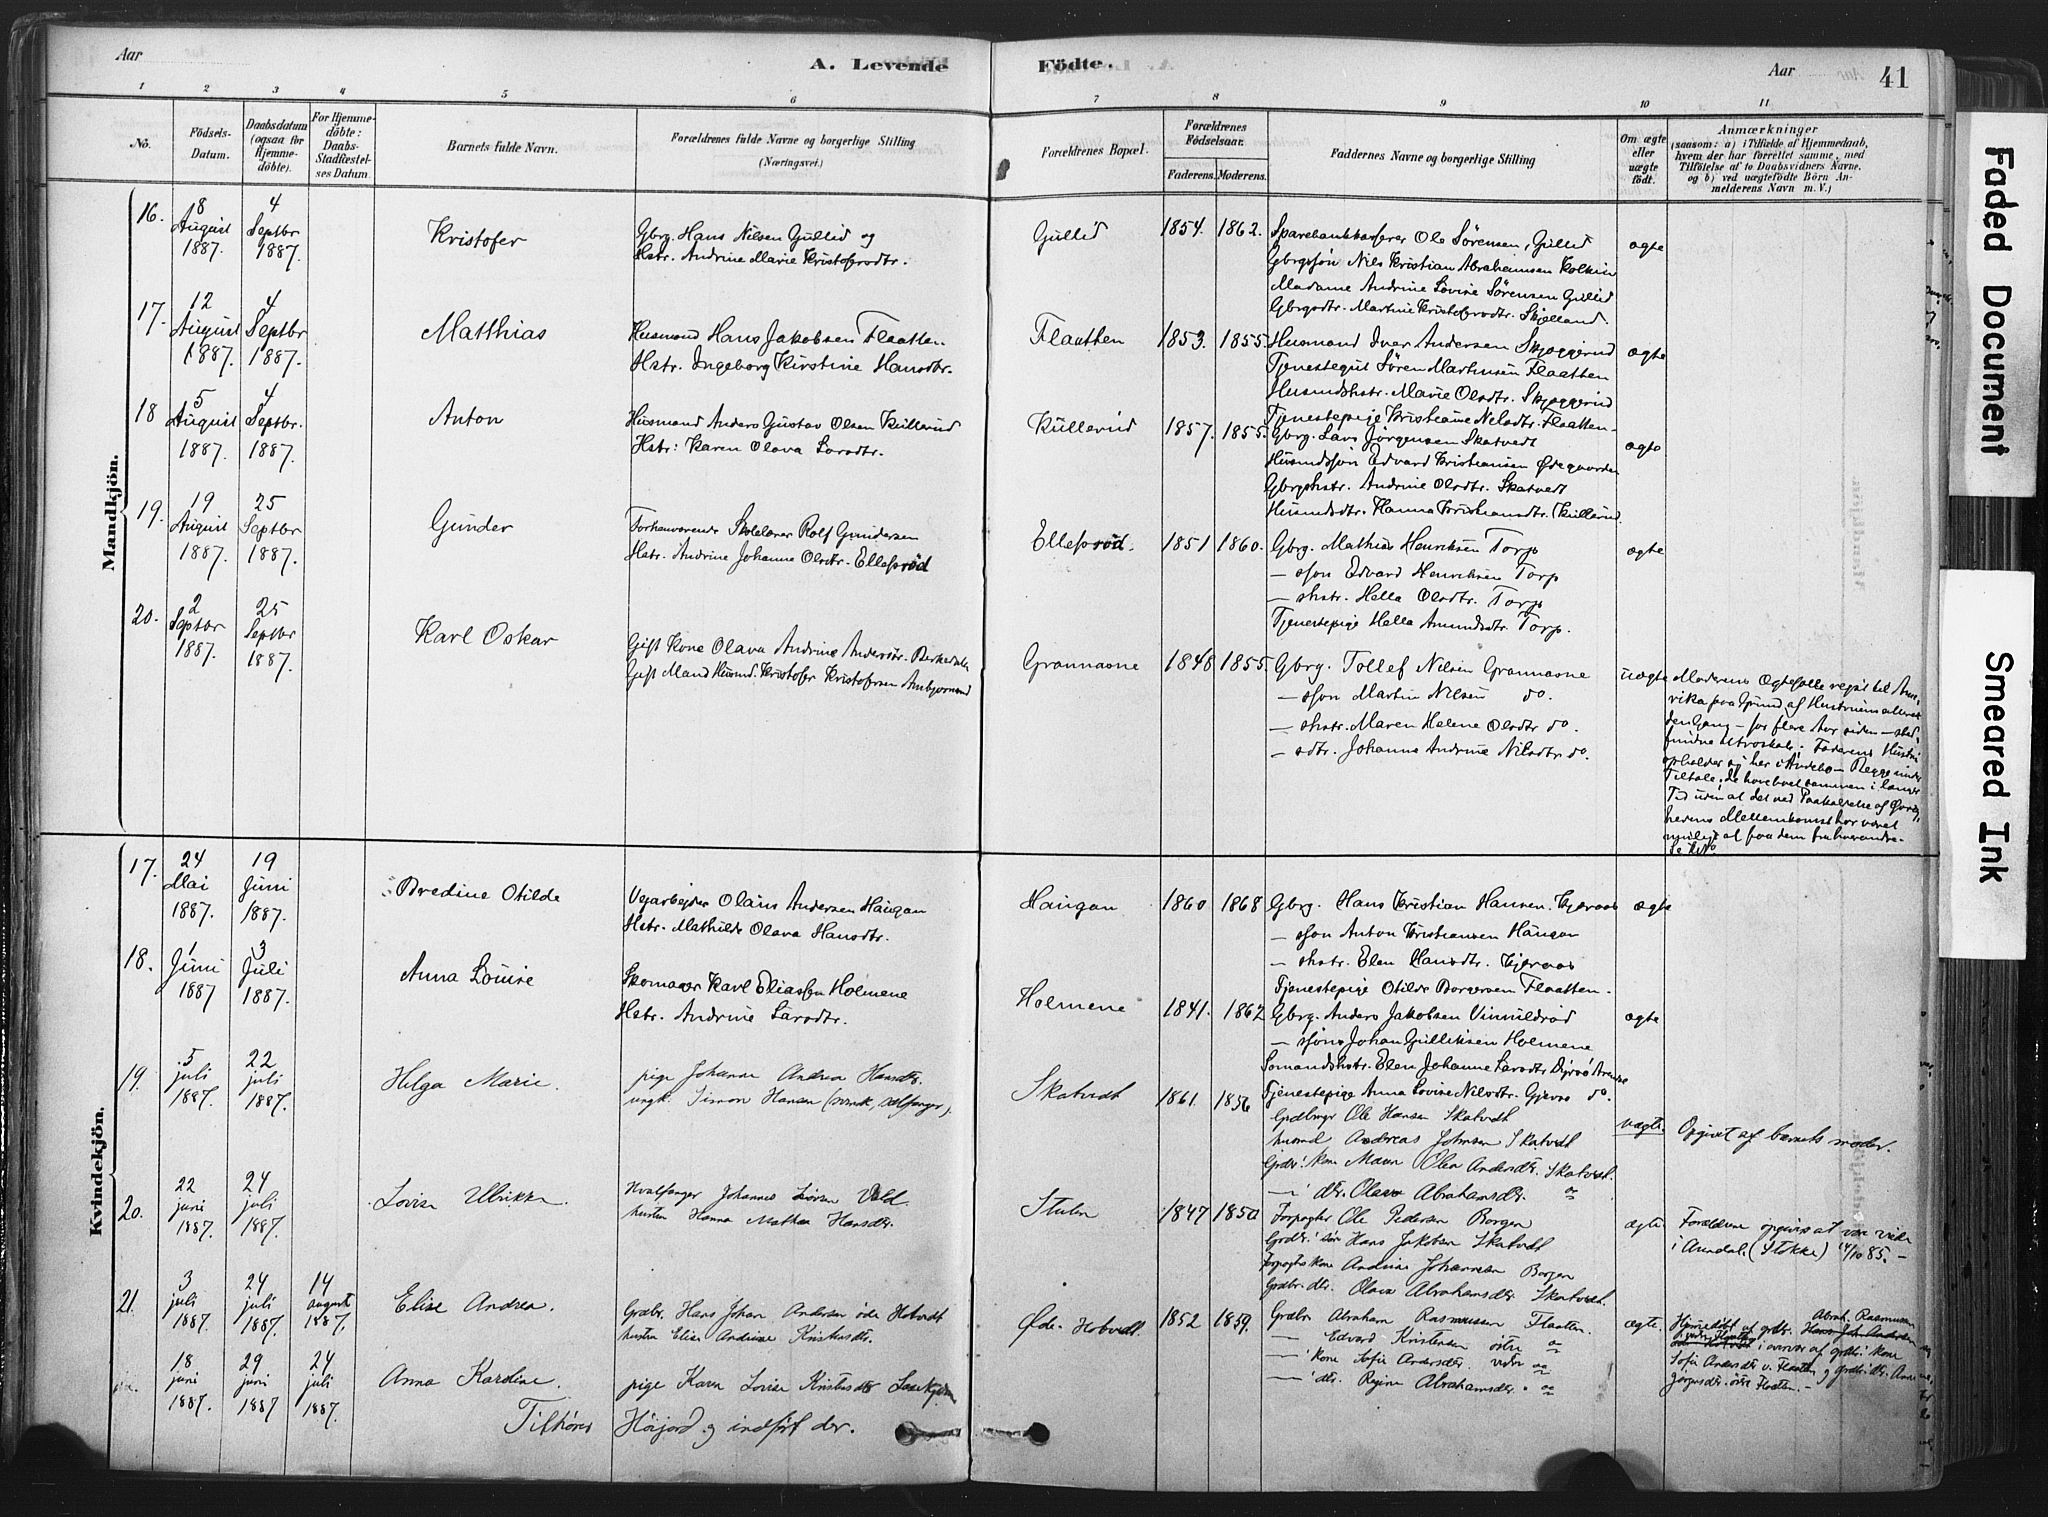 Aar
A. Levende
Födte.
Aar
41
1 2 3 4 5 6 7 8 9 10 11
No.
Födsels-
Datum.
Daabsdatum
(ogsaa for
Hjemme-
döbte).
For Hjemme-
döbte:
Daabs-
Stadfæstel-
ses Datum.
Barnets fulde Navn.
Forældrenes fulde Navne og borgerlige Stilling
(Næringsvei.)
Forældrenes Bopæl.
Forældrenes
Födselsaar.
Faderens. Moderens.
Faddernes Navne og borgerlige Stilling
Om ægte
eller
uægte
födt.
Anmærkninger
(saasom: a) i Tilfælde af Hjemmedaab,
hvem der har forrettet samme, med
Tilföielse af to Daabsvidners Navne,
og b) ved uægtefödte Börn An-
melderens Navn m. V.)
Mandkjön.
16.
8
August
1887.
4
Septbr
1887.
Kristofer
Gbrg. Hans Nilsen Gullid og
Hstr. Andrine Marie Kristofersdtr.
Gullid
1854. 1862.
Sparebankkasserer Ole Sörensen, Gullid
Gbrgssön Nils Kristian Abrahamsen
Madame Andrine Lovise Sörensen Gullid
Gbrgsdtr. Martine Kristofersdtr. Skjelland.
ægte
17.
12
August
1887.
4
Septbr
1887.
Matthias
Husmand Hans Jakobsen Flaatten
Hstr. Ingeborg Kirstine Hansdtr.
Flaatten
1853. 1855.
Husmand Iver Andersen Skjeggerud
Tjenestegut Sören Martinsen Flaatten
Husmdshstr. Marie Olsdtr. Skjeggerud
Tjenestepige Kristiane Nilsdtr. Flaatten
ægte
18
5
August
1887.
4
Septbr.
1887.
Anton
Husmand Anders Gustav Olsen Kullerud
Hstr: Karen Olava Larsdtr.
Kullerud
1857. 1855.
Gbrg. Lars Jörgensen Skatvedt
Husmdssön Edvard Kristiansen Ødegaarden
Gbrgshstr. Andrine Olsdtr. Skatvedt
Husmdsdtr. Hanna Kristiansdtr. Kullerud.
ægte
19.
19
August
1887.
25
Septbr
1887.
Gunder
Forhenværende Skolelærer Rolf Gundersen
Hstr. Andrine Johanne Olsdtr. Ellefsröd
Ellefsröd.
1851 1860.
Gbrg. Mathias Henriksen Torp
— ssön Edvard Henriksen Torp
— shstr. Hella Olsdtr. Torp
Tjenestepige Hella Amundsdtr. Torp.
ægte
20.
2
Septbr
1887.
25
Septbr
1887.
Karl Oskar
Gift Kone Olava Andrine Andersdtr. Berkedalen
Gift Mand Husmd. Kristofer Kristofersen Ambjörnrud
Grannasne
1848 1855.
Gbrg. Tollef Nilsen Grannasne
— ssön Martin Nilsen do.
— shstr. Maren Helene Olsdtr do
— sdtr. Johanne Andrine Nilsdtr do.
uægte
Moderens Ægtefælle rejst til Ame-
rika paa Grund af Hustruens allerede
den Gang – for flere Aar siden – sted-
fundne Utroskab. Faderens Hustru
opholder sig her i Andebu. Begge under
Tiltale; de have boet sammen i længere
Tid uden at det ved Paakaldelse af Øvrig-
hedens Mellemkomst har været
muligt at faa dem fra hverandre.
Kvindekjön.
17.
24
Mai
1887.
19
Juni
1887.
Bredine Otilde
Vejarbejder Olaus Andersen Haugan
Hstr. Mathilde Olava Hansdtr.
Haugan
1860 1868
Gbrg. Hans Kristian Hansen. Gjeraas
— ssön Anton Kristiansen Haugan
— shstr. Elen Hansdtr. Gjeraas
Tjenestepige Otilde Borgersen Flaatten.
ægte
18.
1
Juni
1887
3
Juli
1887.
Anna Louise
Skomager Karl Eliassen Holmene
Hstr. Andrine Larsdtr.
Holmene
1841. 1862
Gbrg. Anders Jakobsen Vinnildröd
— ssön Johan Gulliksen Holmene
Sömandshstr. Elen Johanne Larsdtr
Tjenestepige Anna Lovise Nilsdtr. Gjeraas do.
ægte
19.
5
juli
1887.
22
juli
1887.
Helga Marie.
pige Johanne Andrea Hansdtr.
ungk. Simon Hansen (svensk, sælfanger).
Skatvedt
1861. 1856
Grdbrgr Ole Hansen Skatvedt
husmd Andreas Johnsen Skatvedt
Grdbr. kone Maren Olea Andersdtr. Skatvedt.
— dtr. Olava Abrahamsdtr. do
uægte.
Opgivet af barnets moder.
20.
22
juni
1887.
24
juli
1887.
Lovise Ulrikke.
Hvalfanger Johannes Larsen Vold.
hustru Hanna Mathea Hansdtr.
Stulen
1847 1850
Forpagter Ole Pedersen Borgen
Grdbr. sön Hans Jakobsen Skatvedt
Forpagters kone Andrine Johannesen Borgen
Grdbr. dtr. Olava Abrahamsdtr. Skatvedt.
ægte.
Forældrene opgives at være viede
i Arendal. (Stokke) 14/10 85. –
21.
3
juli
1887.
24
juli
1887.
14
august
1887.
Elise Andrea.
Grdbr. Hans Johan Andersen öde Hotvedt
hustru Elise Andrine Kristensdtr.
Øde-Hotvedt.
1852 1859.
Grdbr Abraham Rasmussen Flaatten.
— Edvard Kristensen östre do
— kone Sofie Andersdtr. vestre do
— dtr. Regine Abrahamsdtr. do
ægte.
Abrah. Rasmussen
Hjemmedöbt af grdbr. Hans Joh. Andersen
i overvær af grdbr. kone
Sofie Andersdtr v. Flaatten og grdbr. dtr. Anne
Jörgensdtr. östre Flaatten. –
18
juni
1887.
29
juni
1887
24
juli
1887.
Anna Karoline.
pige Karen Lovise Kristensdtr
Tilhörer Höijord og indfört der.
Faded Document
Smeared Ink